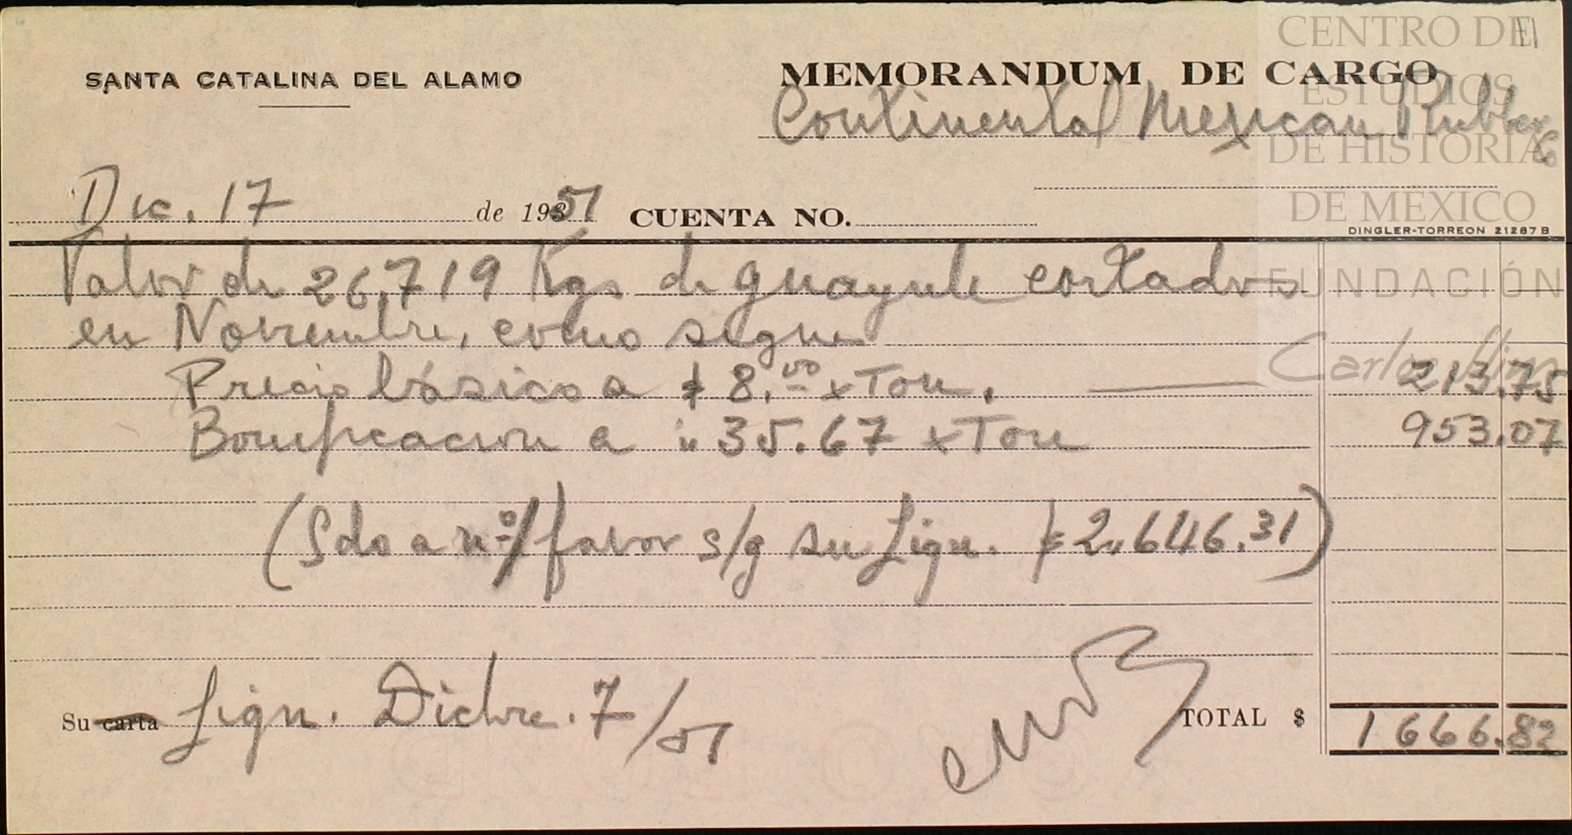 SANTA CATALINA DEL ALAMO
MEMORANDUM DE CARGO
Continental Mexican Rubber Co
Dic. 17 de 1951 CUENTA NO.
DINGLER-TORREON 21287 B
Valor de 26,719 Kgs de guayule cortados
en Noviembre, como sigue
Precio básico a $ 8.00 x Ton. 213.75
Bonificacion a " 35.67 x Ton 953.07
(Sdo a n/favor s/g su Liqu. $2,646.31)
Su carta Liqu. Dicbre. 7/51
TOTAL $ 1666.82
CENTRO DE
ESTUDIOS
DE HISTORIA
DE MEXICO
FUNDACIÓN
Carlos Slim